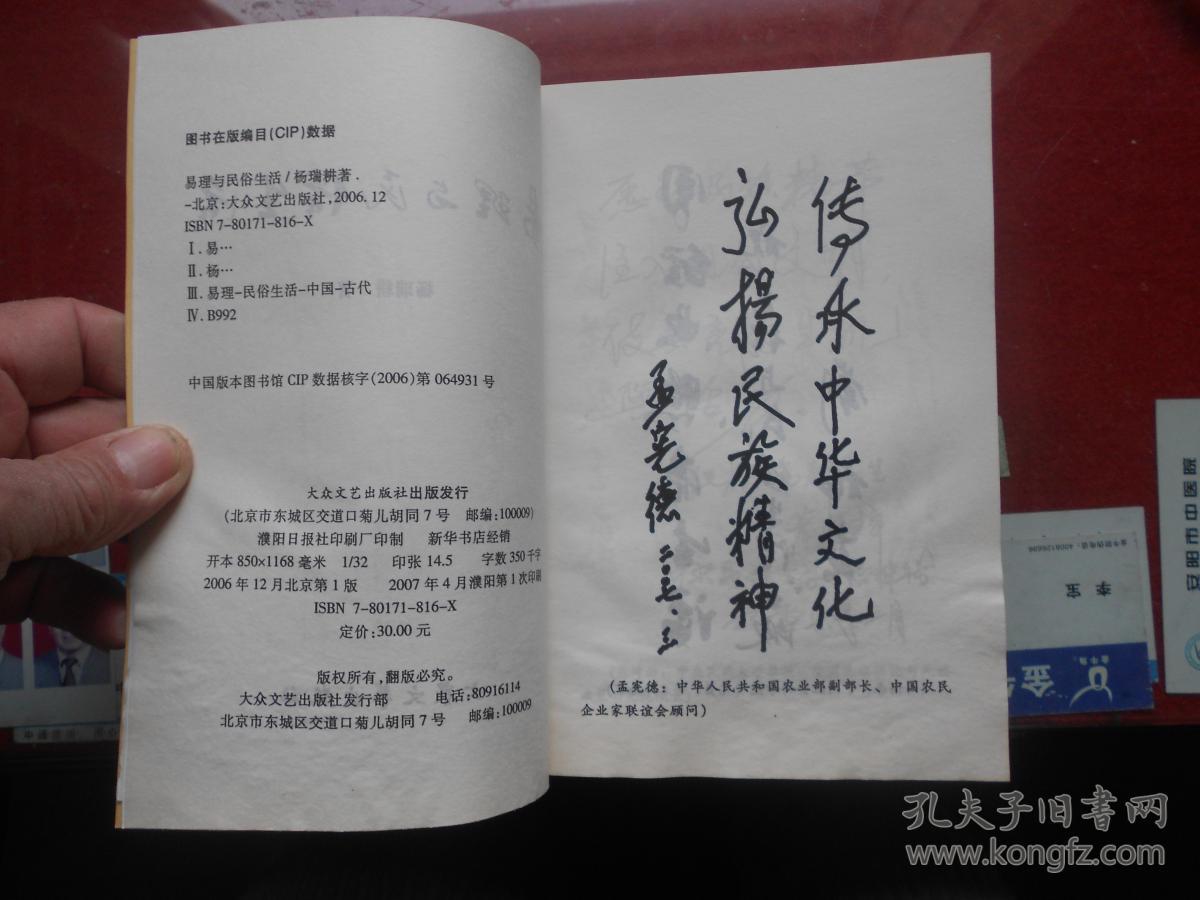 图书在版编目(CIP)数据
易理与民俗生活/杨瑞耕著.
-北京:大众文艺出版社,2006.12
ISBN 7-80171-816-X
Ⅰ.易…
Ⅱ.杨…
Ⅲ.易理-民俗生活-中国-古代
Ⅳ.B992
中国版本图书馆 CIP 数据核字(2006)第 064931 号
大众文艺出版社出版发行
(北京市东城区交道口菊儿胡同7号 邮编:100009)
濮阳日报社印刷厂印制 新华书店经销
开本 850×1168 毫米 1/32 印张 14.5 字数 350 千字
2006 年 12 月北京第 1 版 2007 年 4 月濮阳第 1 次印刷
ISBN 7-80171-816-X
定价:30.00 元
版权所有,翻版必究。
大众文艺出版社发行部 电话:80916114
北京市东城区交道口菊儿胡同7号 邮编:100009
传承中华文化
弘揚民族精神
孟宪德 二〇〇七.三
(孟宪德:中华人民共和国农业部副部长、中国农民
企业家联谊会顾问)
李宝
金牛
孔夫子旧书网
www.kongfz.com